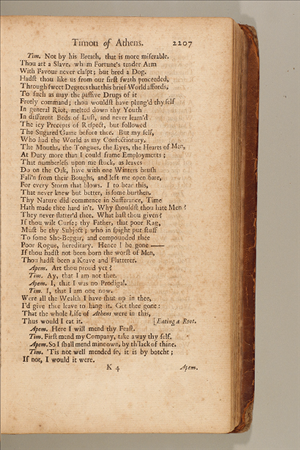 Timon of Athens. 2207
Tim. Not by his Breath, that is more miserable.
Thou art a Slave, whom Fortune's tender Arm
With Favour never claspt; but bred a Dog.
Hadst thou like us from our first swath proceeded,
Through sweet Degrees that this brief World affords,
To such as may the passive Drugs of it
Freely command; thou wouldst have plung'd thy self
In general Riot, melted down thy Youth
In different Beds of Lust, and never learn'd
The icy Precepts of Respect, but followed
The Sugared Game before thee. But my self,
Who had the World as my Confectionary,
The Mouths, the Tongues, the Eyes, the Hearts of Men,
At Duty more than I could frame Employments;
That numberless upon me stuck, as leaves
Do on the Oak, have with one Winters brush
Fall'n from their Boughs, and left me open, bare,
For every Storm that blows. I to bear this,
That never knew but better, is some burthen.
Thy Nature did commence in Sufferance, Time
Hath made thee hard in't. Why shouldst thou hate Men?
They never flatter'd thee. What hast thou given?
If thou wilt Curse; thy Father, that poor Rag,
Must be thy Subject; who in spight put stuff
To some She-Beggar, and compounded thee
Poor Rogue, hereditary. Hence! be gone——
If thou hadst not been born the worst of Men,
Thou hadst been a Knave and Flatterer.
Apem. Art thou proud yet?
Tim. Ay, that I am not thee.
Apem. I, that I was no Prodigal.
Tim. I, that I am one now.
Were all the Wealth I have shut up in thee,
I'd give thee leave to hang it. Get thee gone:
That the whole Life of Athens were in this,
Thus would I eat it. [Eating a Root.
Apem. Here I will mend thy Feast.
Tim. First mend my Company, take away thy self.
Apem. So I shall mend mine own, by th'lack of thine.
Tim. 'Tis not well mended so, it is but botcht;
If not, I would it were.
K 4 Apem.